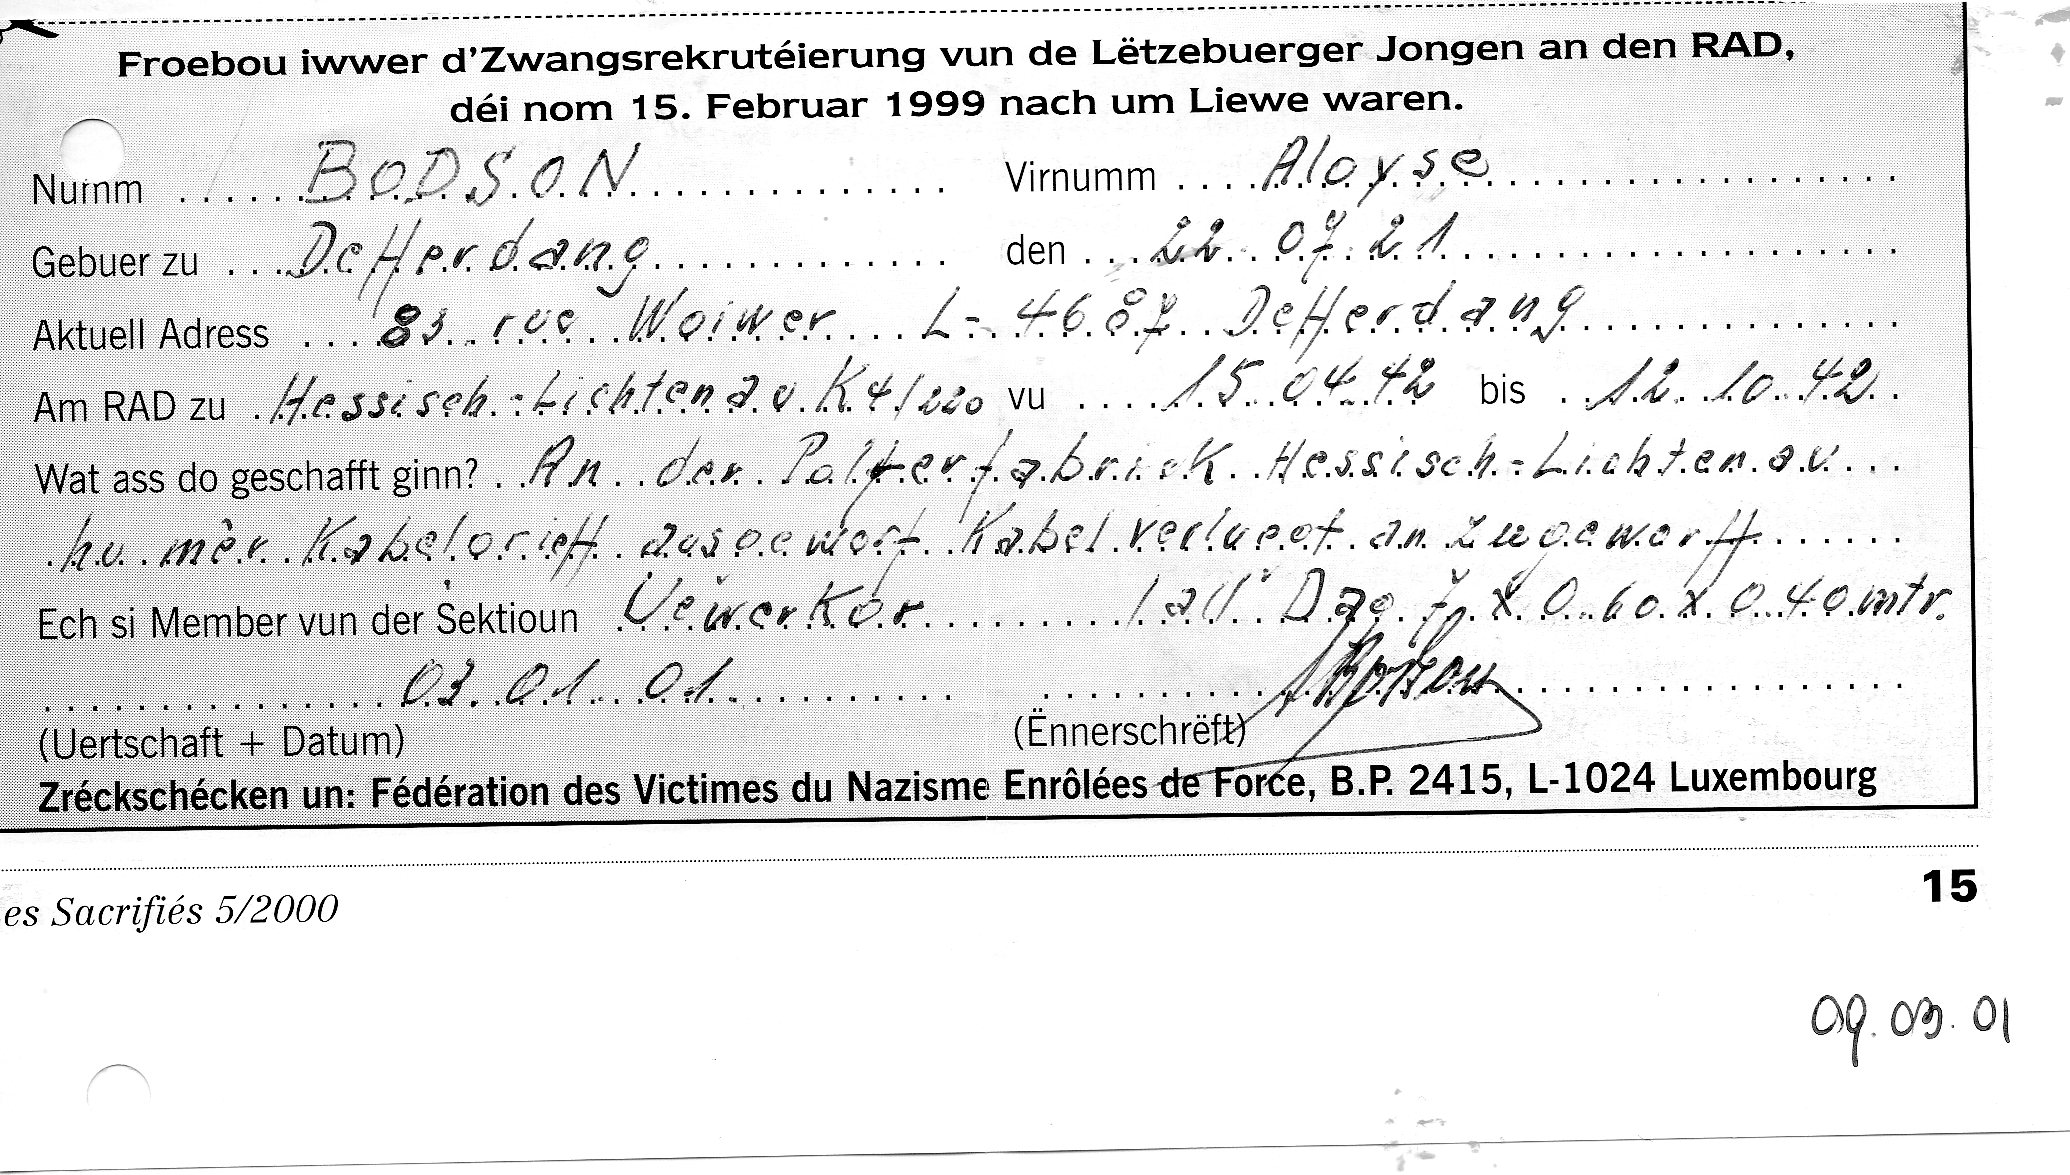 Froebou iwwer d'Zwangsrekrutéierung vun de Lëtzebuerger Jongen an den RAD,
déi nom 15. Februar 1999 nach um Liewe waren.
Numm BODSON Virnumm Aloyse
Gebuer zu Defferdang den 22.07.21
Aktuell Adress 83 rue Woiwer L-4687 Defferdang
Am RAD zu Hessisch-Lichtenau K4/220 vu 15.04.42 bis 12.10.42
Wat ass do geschafft ginn? An der Polferfabrick Hessisch-Lichtenau
hu mèr Kabelgrieff ausgeworf Kabel verluegt an zugeworff
Ech si Member vun der Sektioun Uewerkor all Dag 7 x 0.60 x 0.40 mtr.
03.01.01
(Uertschaft + Datum) (Ënnerschrëft)
Zréckschécken un: Fédération des Victimes du Nazisme Enrôlées de Force, B.P. 2415, L-1024 Luxembourg
es Sacrifiés 5/2000 15
09.03.01